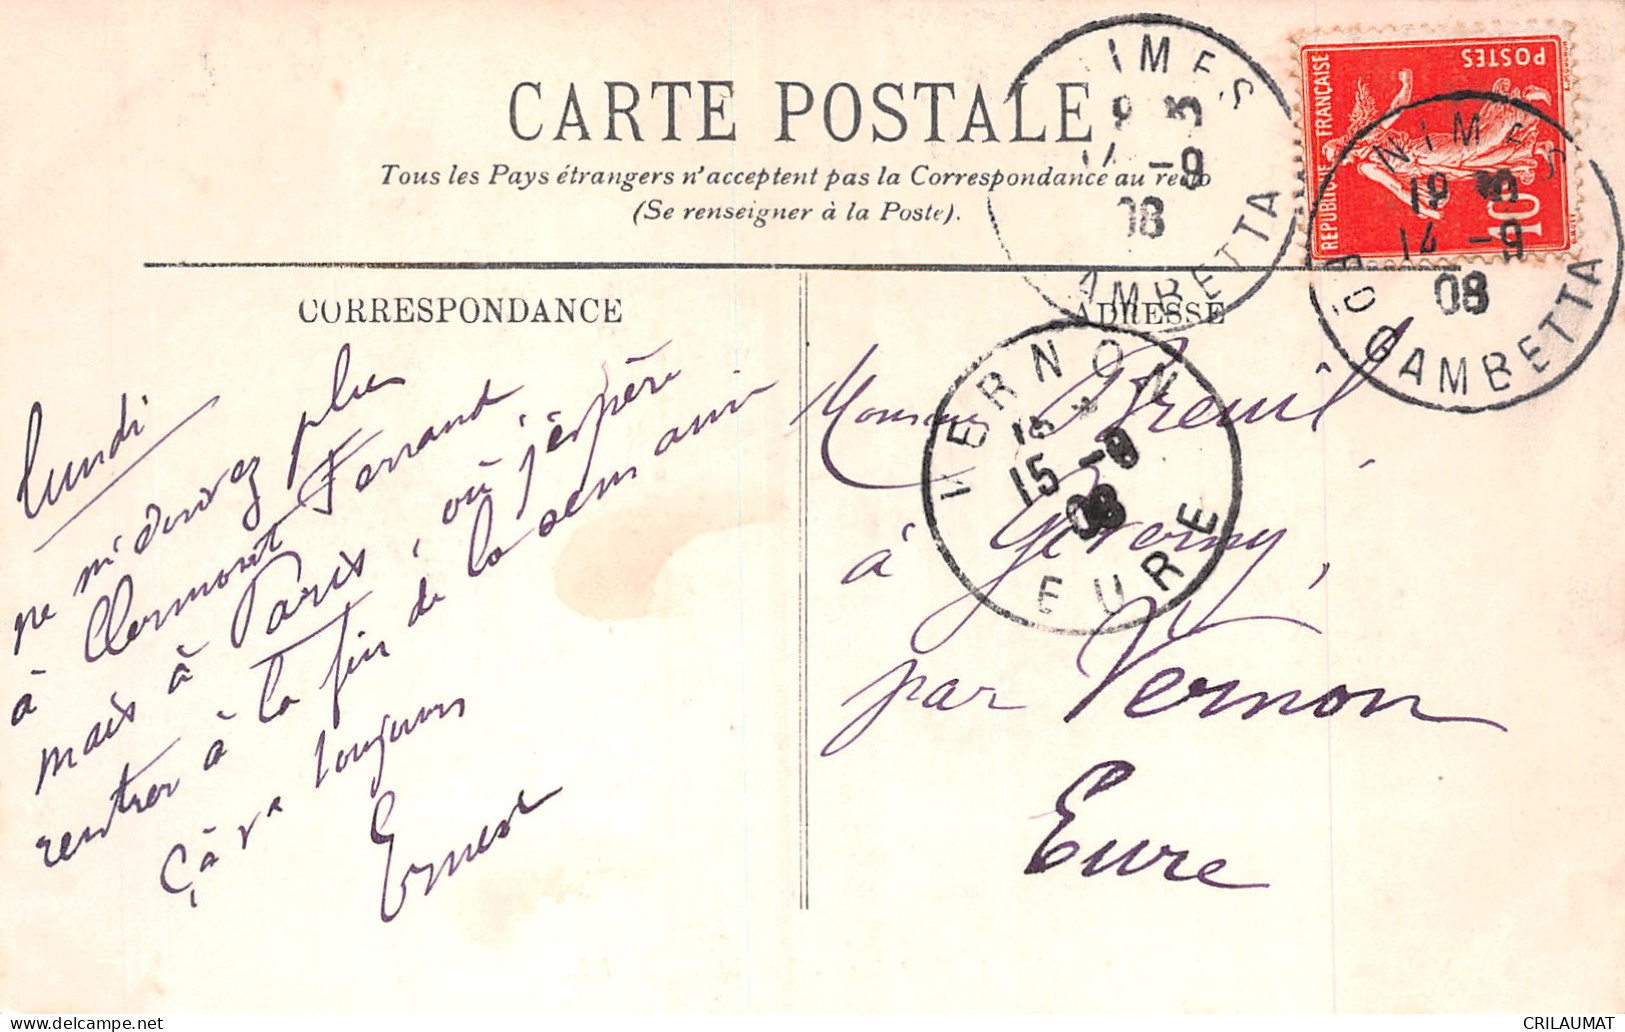 CARTE POSTALE
Tous les Pays étrangers n'acceptent pas la Correspondance au recto
(Se renseigner à la Poste).
CORRESPONDANCE
ADRESSE
Lundi
ne m'écrivez plus
à Clermont Ferrand
mais à Paris, où j'espère
rentrer à la fin de la semaine
Çà va toujours
Ernest
Monsieur Breuil
à Giverny,
par Vernon
Eure
NIMES
14 -9
08
GAMBETTA
NIMES
14 -9
08
GAMBETTA
VERNON
15 -9
08
EURE
REPUBLIQUE FRANÇAISE
POSTES
10
CRILAUMAT